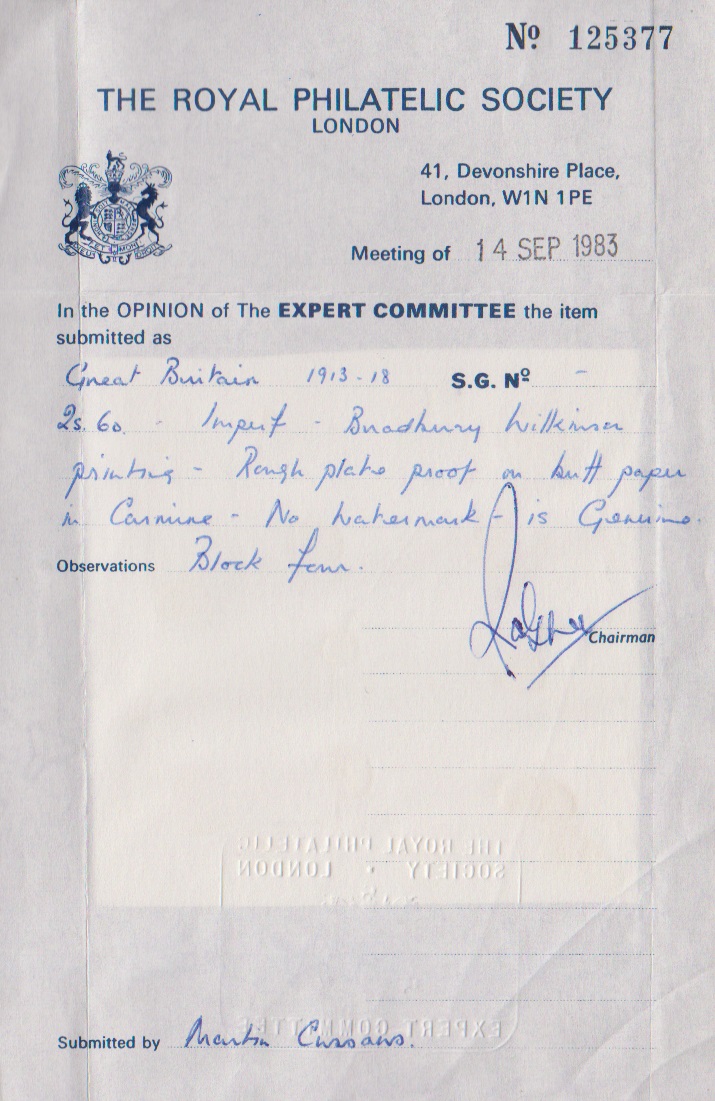 Nº 125377
THE ROYAL PHILATELIC SOCIETY
LONDON
41, Devonshire Place,
London, W1N 1PE
Meeting of 14 SEP 1983
In the OPINION of The EXPERT COMMITTEE the item
submitted as
Great Britain 1913-18 S.G. Nº -
2s. 6d. - Imperf - Bradbury Wilkinson
printing - Rough plate proof on buff paper
in Carmine - No Watermark - is Genuine.
Observations Block four.
Chairman
THE ROYAL PHILATELIC
SOCIETY • LONDON
EXPERT COMMITTEE
Submitted by Martin